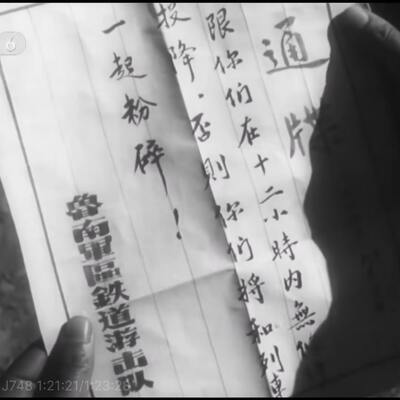 通牒
限你们在十二小時内無
投降.否則你们將和列車
一起粉碎！
魯南軍區鉄道游击队
6
J748 1:21:21/1:23:28